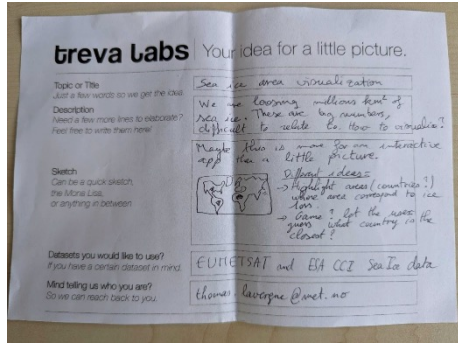 treva labs
Your idea for a little picture.
Topic or Title
Just a few words so we get the idea.
Sea ice area visualization
Description
Need a few more lines to elaborate?
Feel free to write them here!
We are loosing millions km² of
sea ice. These are big numbers,
difficult to relate to. How to visualize?
Maybe this is more for an interactive
app than a little picture.
Sketch
Can be a quick sketch,
the Mona Lisa,
or anything in between
Different ideas:
→ Highlight areas (countries?)
whose area correspond to ice
loss.
→ Game? let the user
guess what country is the
closest?
Datasets you would like to use?
If you have a certain dataset in mind.
EUMETSAT and ESA CCI Sea Ice data
Mind telling us who you are?
So we can reach back to you.
thomas.lavergne@met.no